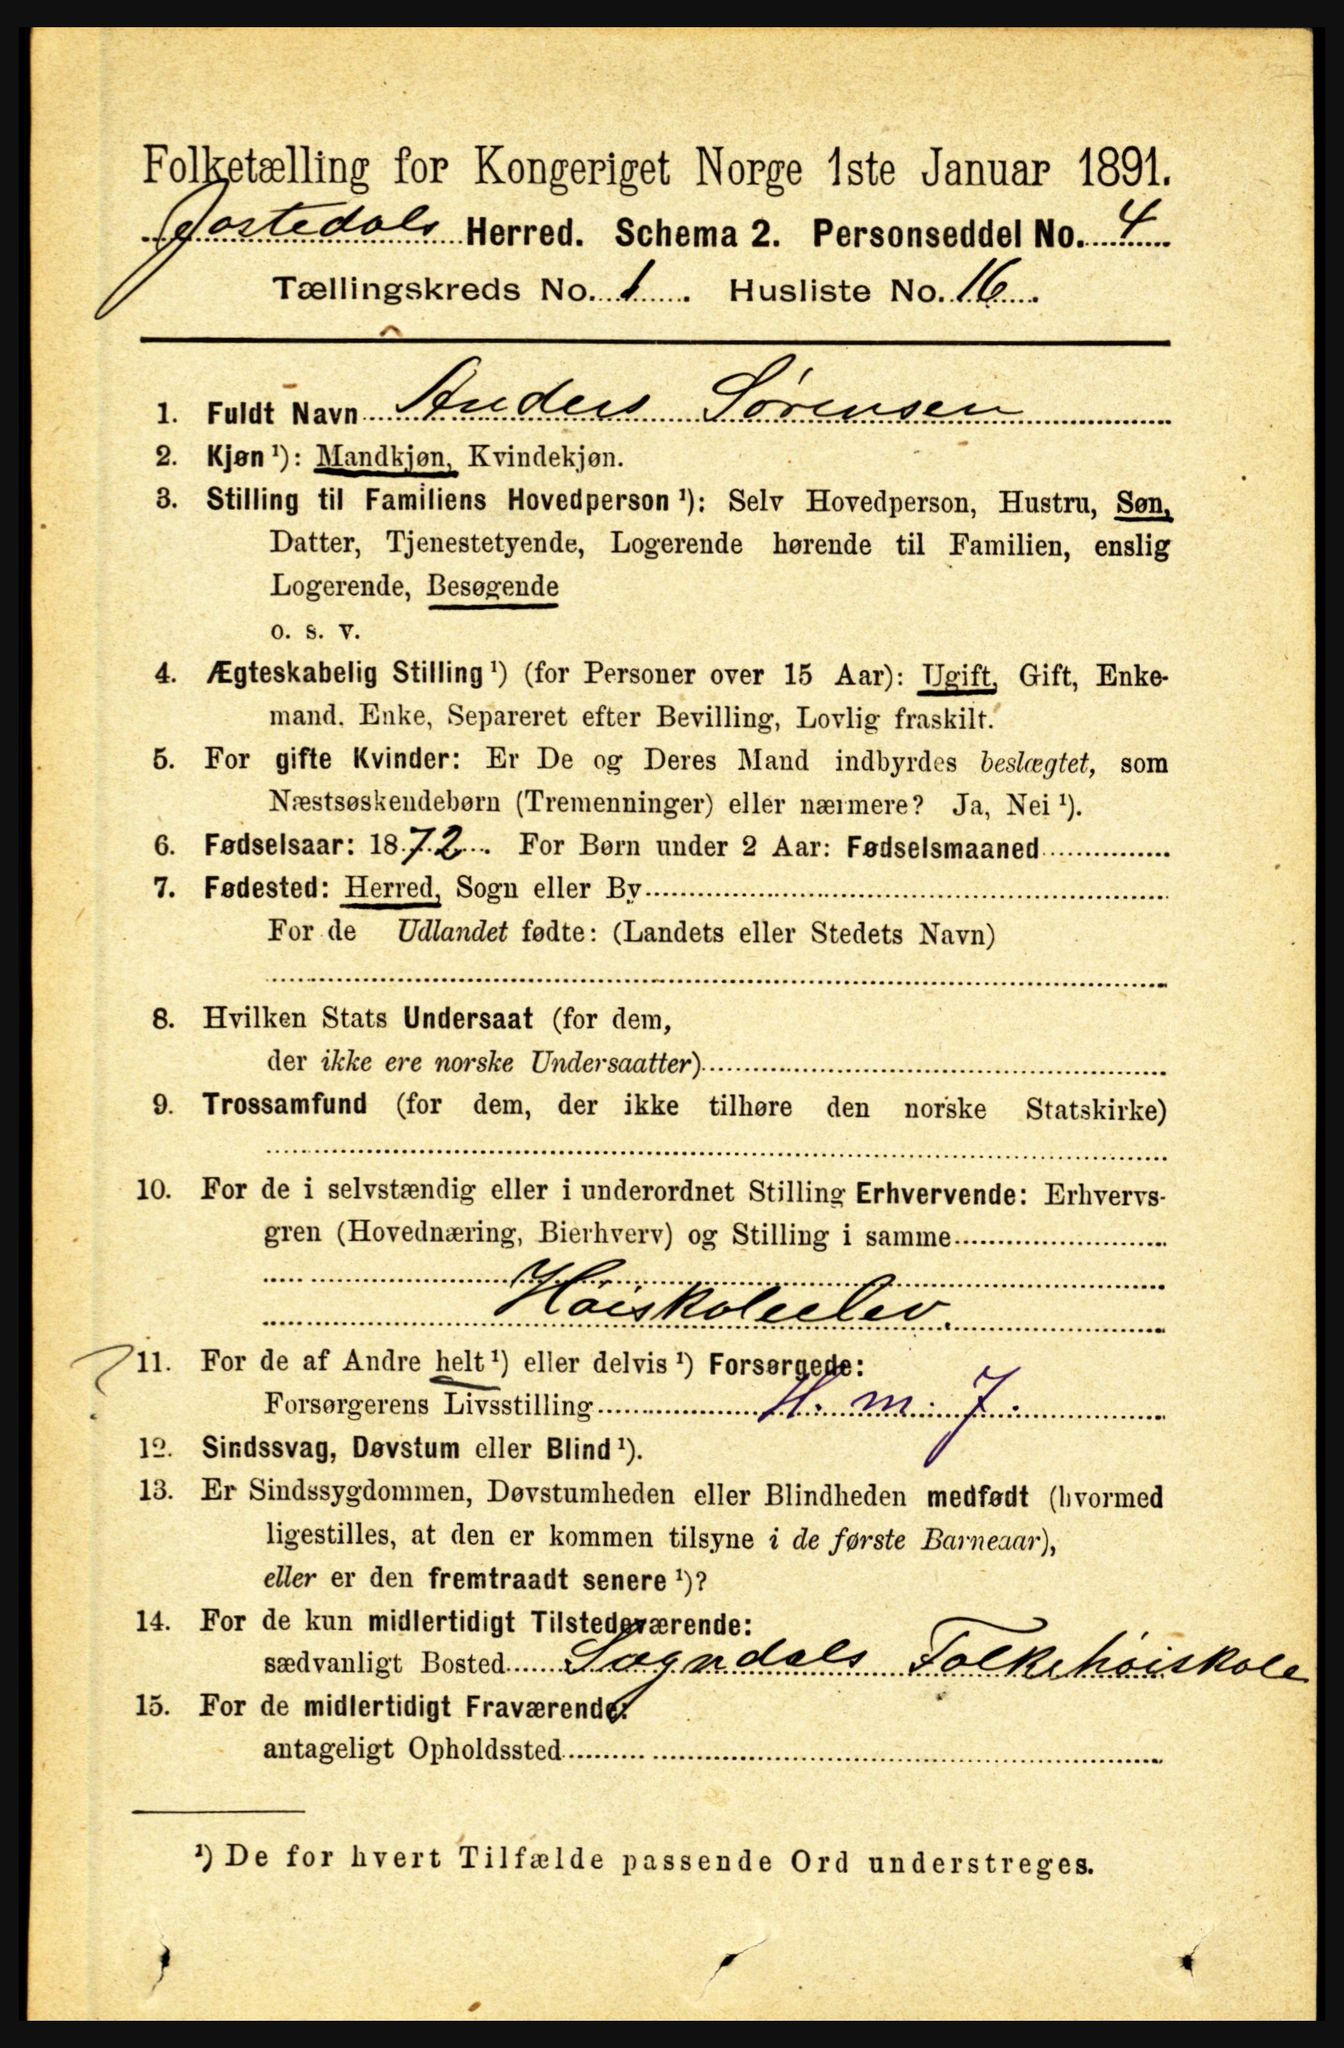 Folketælling for Kongeriget Norge 1ste Januar 1891.
Jostedals Herred. Schema 2. Personseddel No. 4
Tællingskreds No. 1. Husliste No. 16.
1. Fuldt Navn Anders Sørensen
2. Kjøn ¹): Mandkjøn, Kvindekjøn.
3. Stilling til Familiens Hovedperson ¹): Selv Hovedperson, Hustru, Søn,
Datter, Tjenestetyende, Logerende hørende til Familien, enslig
Logerende, Besøgende
o. s. v.
4. Ægteskabelig Stilling ¹) (for Personer over 15 Aar): Ugift, Gift, Enke-
mand. Enke, Separeret efter Bevilling, Lovlig fraskilt.
5. For gifte Kvinder: Er De og Deres Mand indbyrdes beslægtet, som
Næstsøskendebørn (Tremenninger) eller nærmere? Ja, Nei ¹).
6. Fødselsaar: 1872. For Børn under 2 Aar: Fødselsmaaned
7. Fødested: Herred, Sogn eller By
For de Udlandet fødte: (Landets eller Stedets Navn)
8. Hvilken Stats Undersaat (for dem,
der ikke ere norske Undersaatter)
9. Trossamfund (for dem, der ikke tilhøre den norske Statskirke)
10. For de i selvstændig eller i underordnet Stilling Erhvervende: Erhvervs-
gren (Hovednæring, Bierhverv) og Stilling i samme
Høiskoleelev.
11. For de af Andre helt ¹) eller delvis ¹) Forsørgede:
Forsørgerens Livsstilling H. m. J.
12. Sindssvag, Døvstum eller Blind ¹).
13. Er Sindssygdommen, Døvstumheden eller Blindheden medfødt (hvormed
ligestilles, at den er kommen tilsyne i de første Barneaar),
eller er den fremtraadt senere ¹)?
14. For de kun midlertidigt Tilstedeværende:
sædvanligt Bosted Sogndals Folkehøiskole
15. For de midlertidigt Fraværende:
antageligt Opholdssted
¹) De for hvert Tilfælde passende Ord understreges.